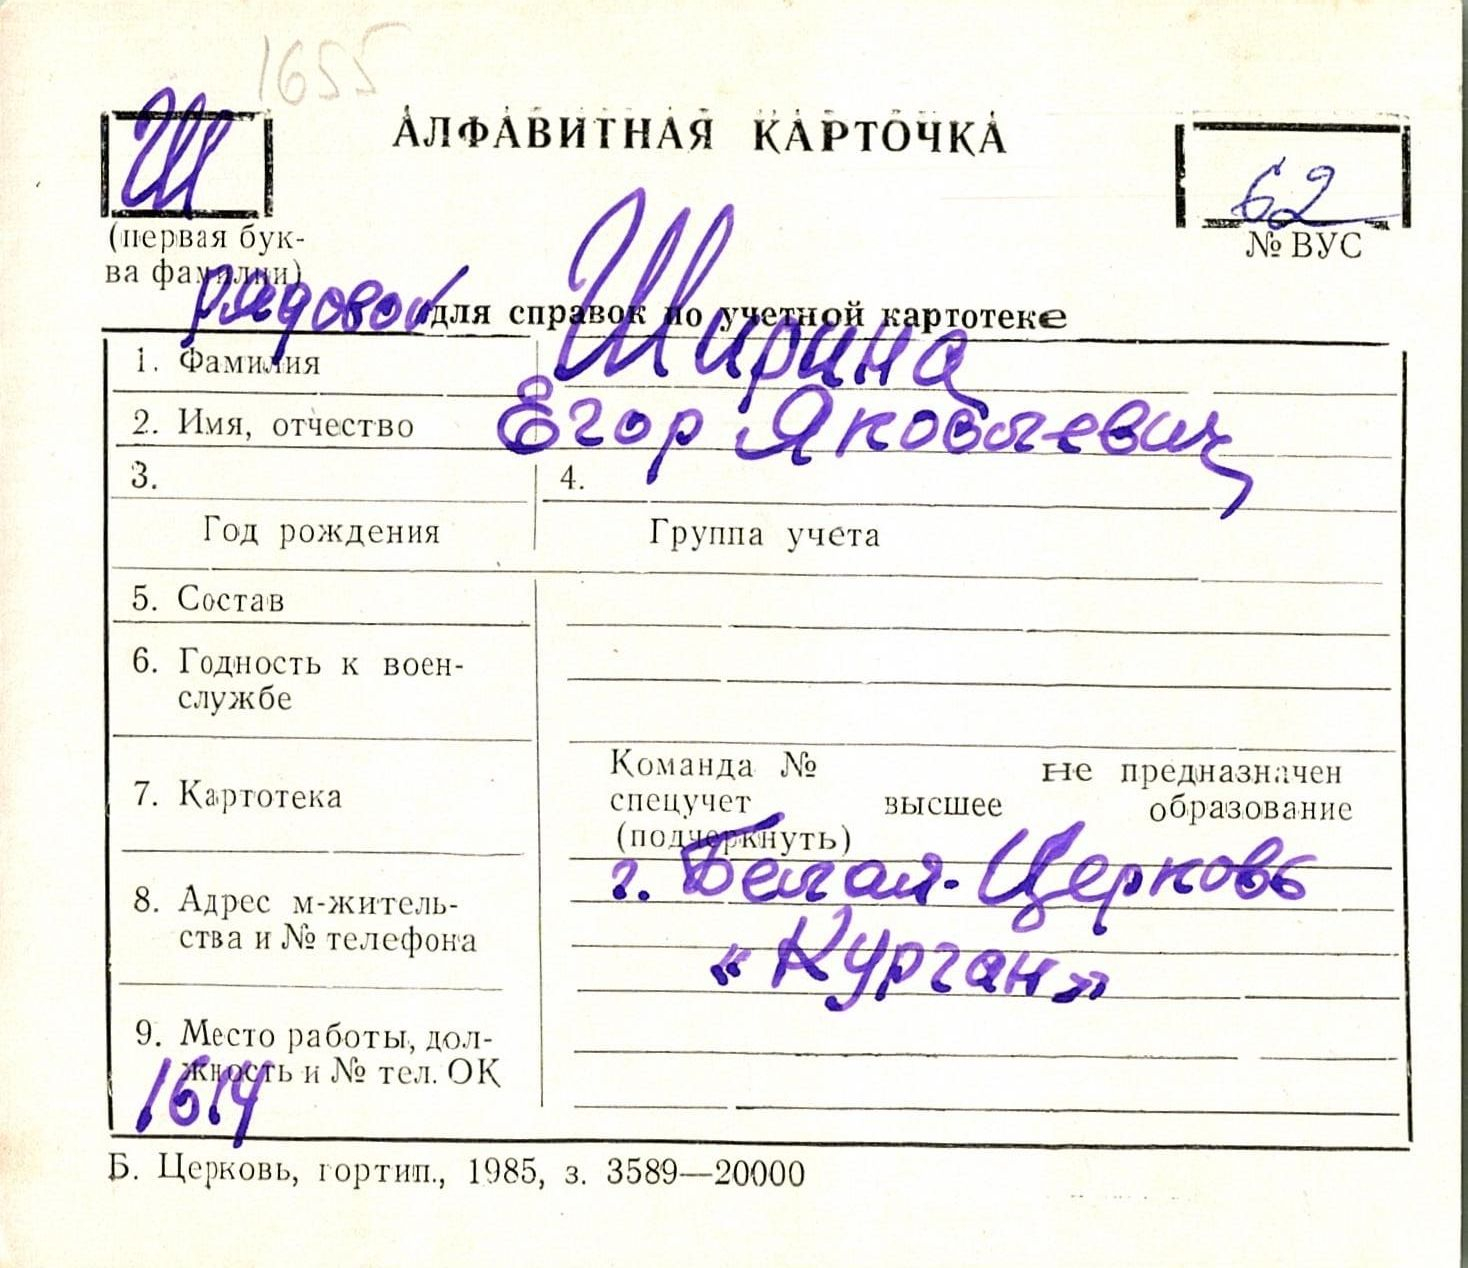 1655
Ш
АЛФАВИТНАЯ КАРТОЧКА
62
(первая бук-
ва фамилии)
№ ВУС
рядовой
для справок по учетной картотеке
1. Фамилия Ширина
2. Имя, отчество Егор Яковлевич
3. 4.
Год рождения Группа учета
5. Состав
6. Годность к воен-
службе
7. Картотека
Команда № не предназначен
спецучет высшее образование
(подчеркнуть)
8. Адрес м-житель-
ства и № телефона
г. Белая-Церковь
«Курган»
9. Место работы, дол-
жность и № тел. ОК
1614
Б. Церковь, гортип., 1985, з. 3589—20000